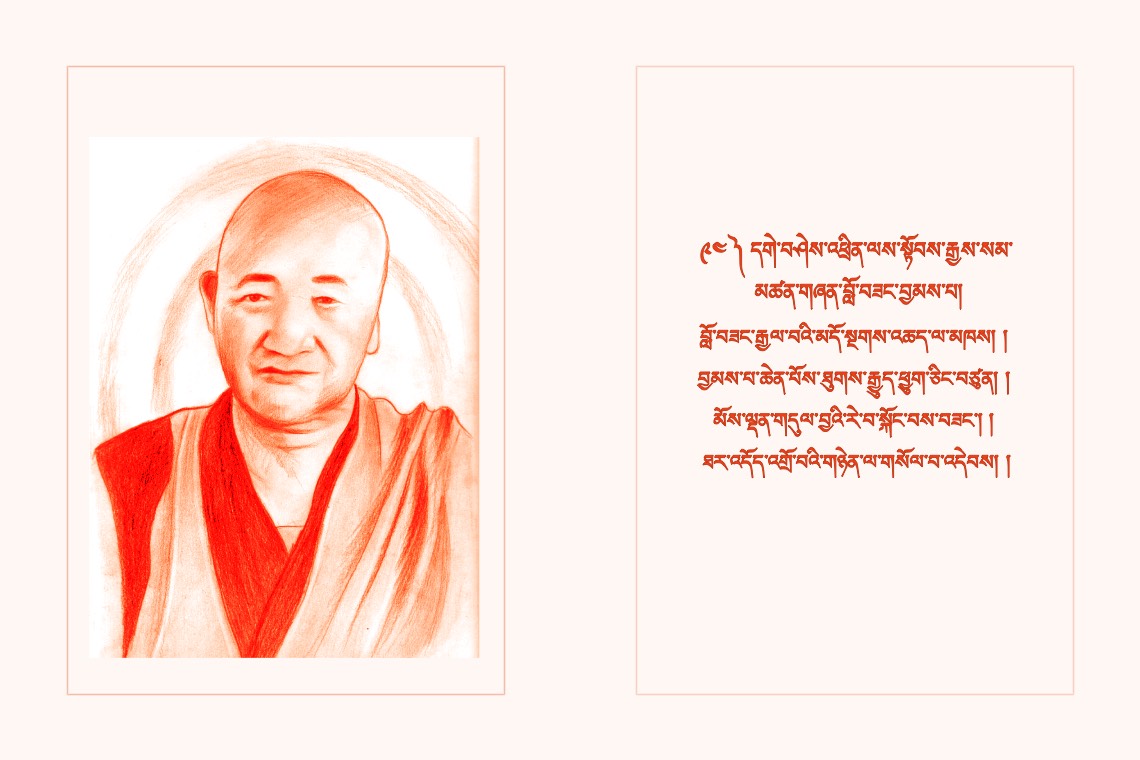 ༄༅༽ དགེ་བཤེས་འཕྲིན་ལས་སྟོབས་རྒྱས་སམ་
མཚན་གཞན་བློ་བཟང་བྱམས་པ།
བློ་བཟང་རྒྱལ་བའི་མདོ་སྔགས་འཆད་ལ་མཁས། །
བྱམས་པ་ཆེན་པོས་ཐུགས་རྒྱུད་ཕྱུག་ཅིང་བཙུན། །
མོས་ལྡན་གདུལ་བྱའི་རེ་བ་སྐོང་བས་བཟང་། །
ཐར་འདོད་འགྲོ་བའི་གཉེན་ལ་གསོལ་བ་འདེབས། །